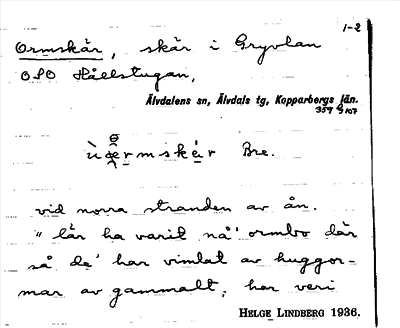 1-2
Ormskär, skär i Gryvlan
OSO Hållstugan,
Älvdalens sn, Älvdals tg, Kopparbergs län.
359 G 107
Bre.
vid norra stranden av ån.
" lär ha varit nå' ormbo där
så de' har vimlat av huggor-
mar av gammalt; har veri
HELGE LINDBERG 1936.